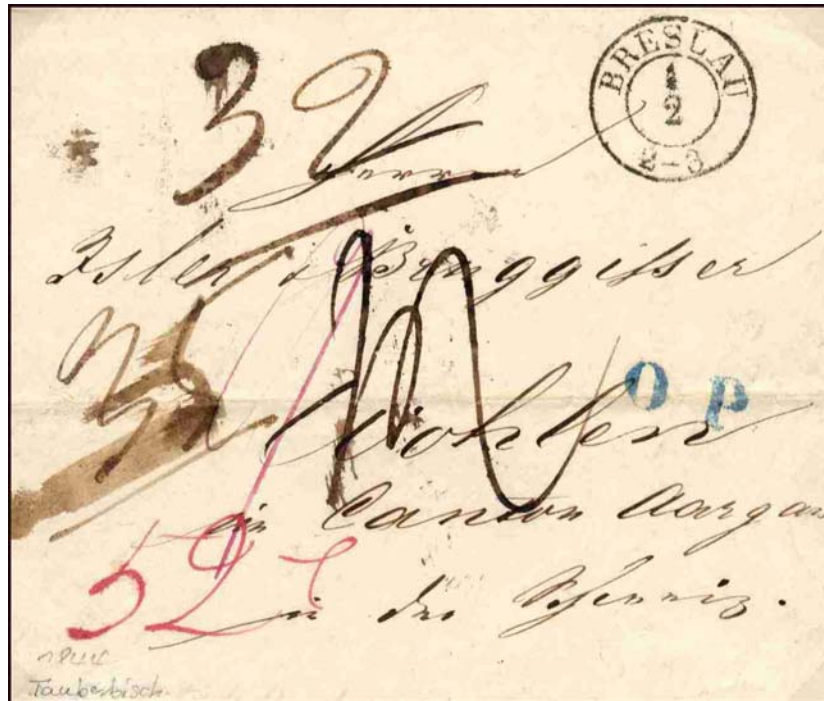 BRESLAU
1/2
2-3
32
Herren
Isler & Bruggisser
35
O P
Wohlen
im Canton Aargau
52
in der Schweiz.
1844
Tauberbisch.